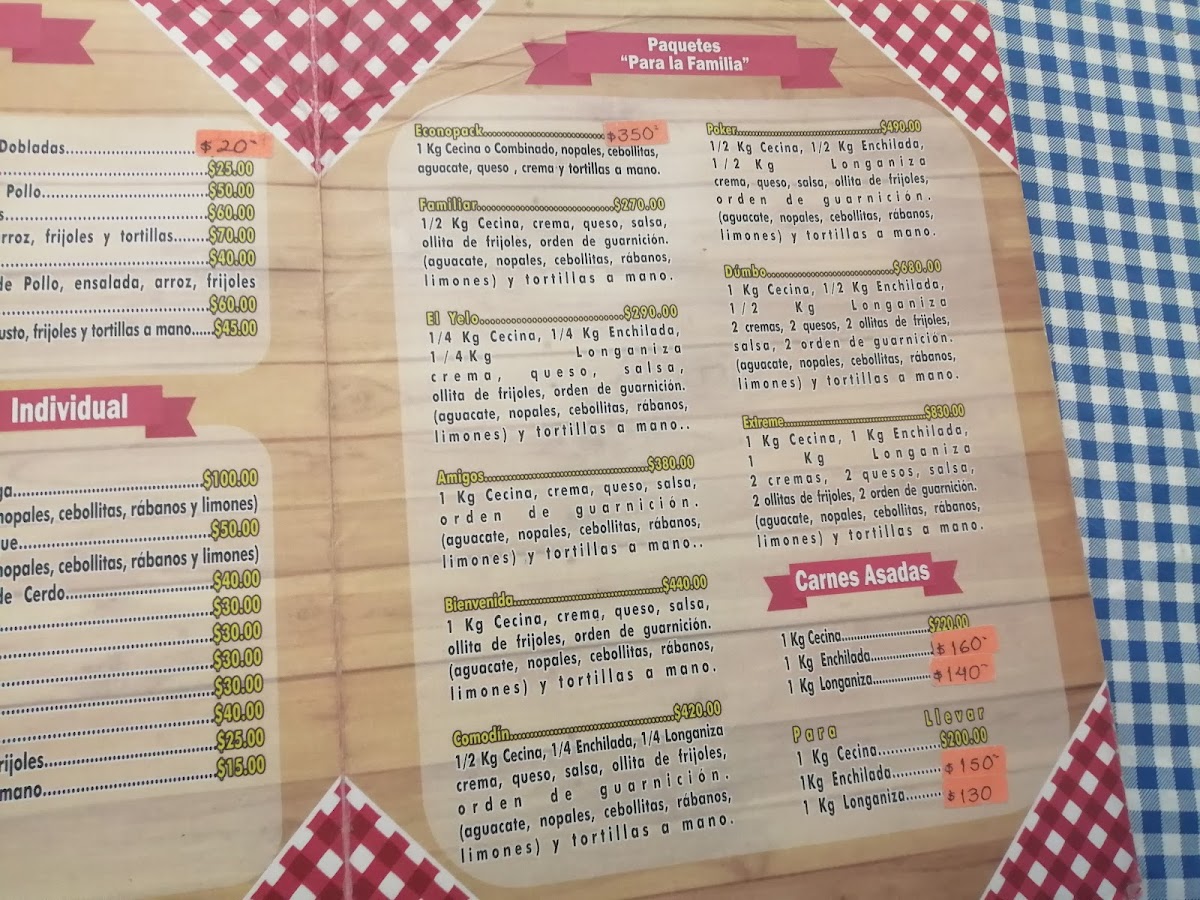 Dobladas $20-
$25.00
Pollo $50.00
$60.00
arroz, frijoles y tortillas $70.00
$40.00
de Pollo, ensalada, arroz, frijoles
$60.00
frijoles y tortillas a mano $45.00
Individual
$100.00
nopales, cebollitas, rábanos y limones)
$50.00
nopales, cebollitas, rábanos y limones)
de Cerdo $40.00
$30.00
$30.00
$30.00
$30.00
$40.00
$25.00
$15.00
mano
Paquetes
"Para la Familia"
Econopack $350-
1 Kg Cecina o Combinado, nopales, cebollitas,
aguacate, queso , crema y tortillas a mano.
Familiar $270.00
1/2 Kg Cecina, crema, queso, salsa,
ollita de frijoles, orden de guarnición.
(aguacate, nopales, cebollitas, rábanos,
limones) y tortillas a mano.
El Yelo $290.00
1/4 Kg Cecina, 1/4 Kg Enchilada,
1/4Kg Longaniza
crema, queso, salsa,
ollita de frijoles, orden de guarnición.
(aguacate, nopales, cebollitas, rábanos,
limones) y tortillas a mano..
Amigos $380.00
1 Kg Cecina, crema, queso, salsa,
orden de guarnición.
(aguacate, nopales, cebollitas, rábanos,
limones) y tortillas a mano..
Bienvenida $440.00
1 Kg Cecina, crema, queso, salsa,
ollita de frijoles, orden de guarnición.
(aguacate, nopales, cebollitas, rábanos,
limones) y tortillas a mano.
Comodín $420.00
1/2 Kg Cecina, 1/4 Enchilada, 1/4 Longaniza
crema, queso, salsa, ollita de frijoles,
orden de guarnición.
(aguacate, nopales, cebollitas, rábanos,
limones) y tortillas a mano.
Poker $490.00
1/2 Kg Cecina, 1/2 Kg Enchilada,
1/2 Kg Longaniza
crema, queso, salsa, ollita de frijoles,
orden de guarnición.
(aguacate, nopales, cebollitas, rábanos,
limones) y tortillas a mano.
Dúmbo $680.00
1 Kg Cecina, 1/2 Kg Enchilada,
1/2 Kg Longaniza
2 cremas, 2 quesos, 2 ollitas de frijoles,
salsa, 2 orden de guarnición.
(aguacate, nopales, cebollitas, rábanos,
limones) y tortillas a mano.
Extreme $830.00
1 Kg Cecina, 1 Kg Enchilada,
1 Kg Longaniza
2 cremas, 2 quesos, salsa,
2 ollitas de frijoles, 2 orden de guarnición.
(aguacate, nopales, cebollitas, rábanos,
limones) y tortillas a mano.
Carnes Asadas
1 Kg Cecina $220.00
1 Kg Enchilada $160-
1 Kg Longaniza $140-
Para Llevar
1 Kg Cecina $200.00
1Kg Enchilada $150-
1 Kg Longaniza $130